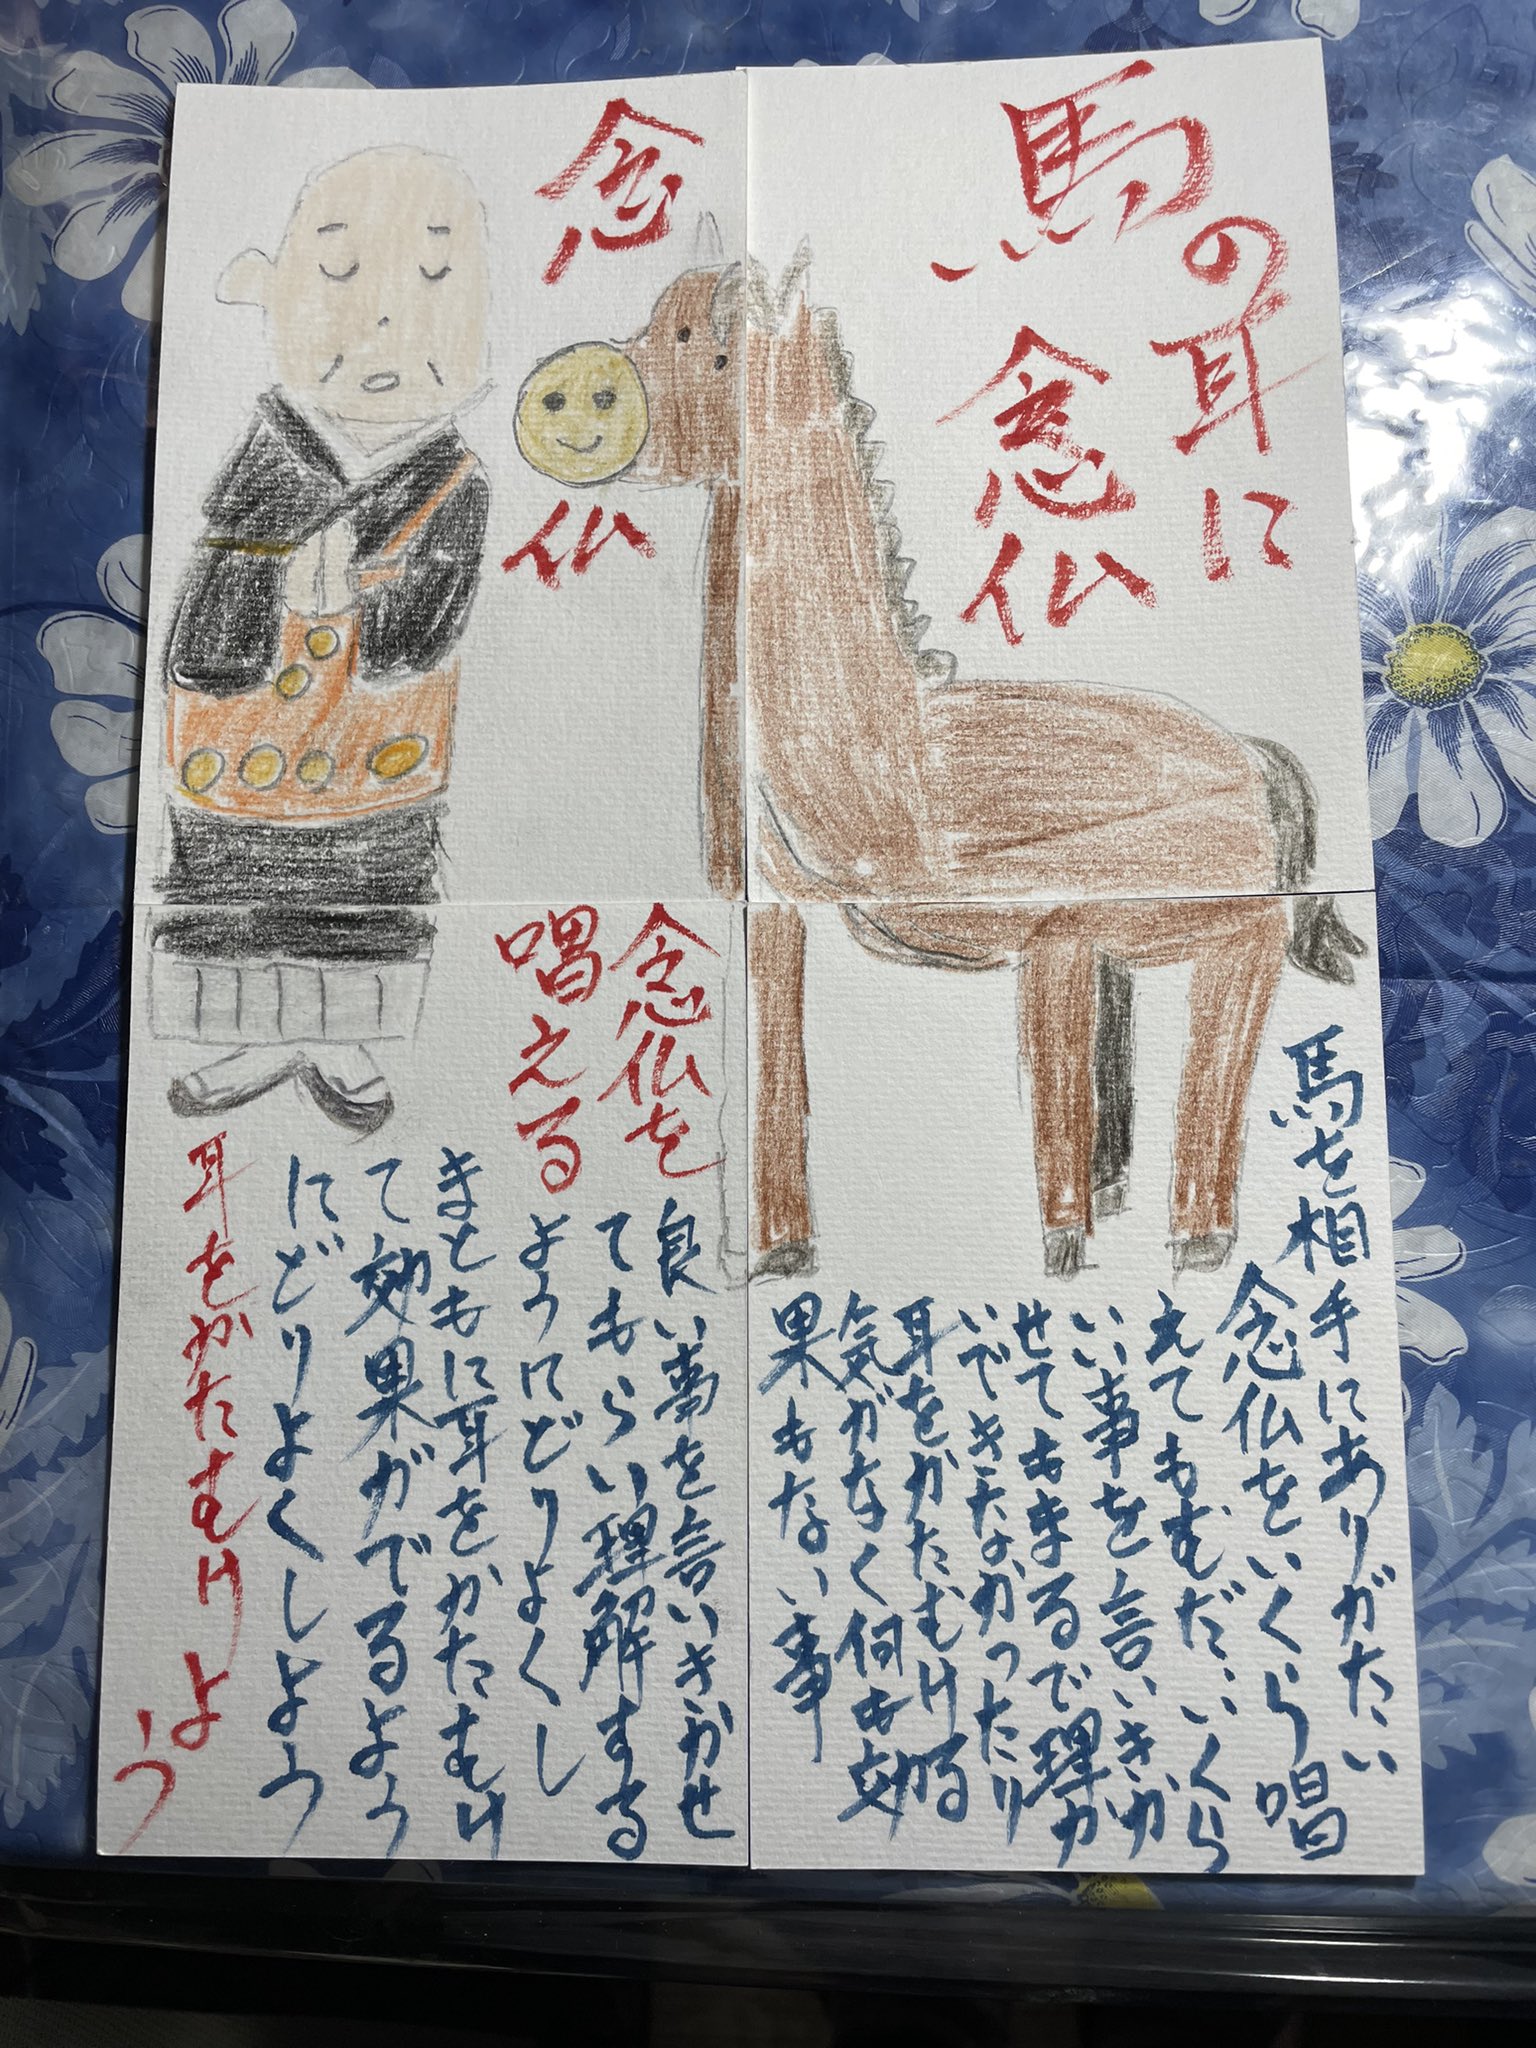 馬の耳に
念仏
念
仏
馬を相手にありがたい
念仏をいくら唱
えてもむだ、いくら
いい事を言いきか
せてもまるで理か
いできなかったり
耳をかたむける
気がなく何も効
果もない事
念仏を
唱える
良い事を言いきかせ
てもらい理解する
ようにどりよくし
まともに耳をかたむけ
て効果がでるよう
にどりよくしよう
耳をかたむけよ
う